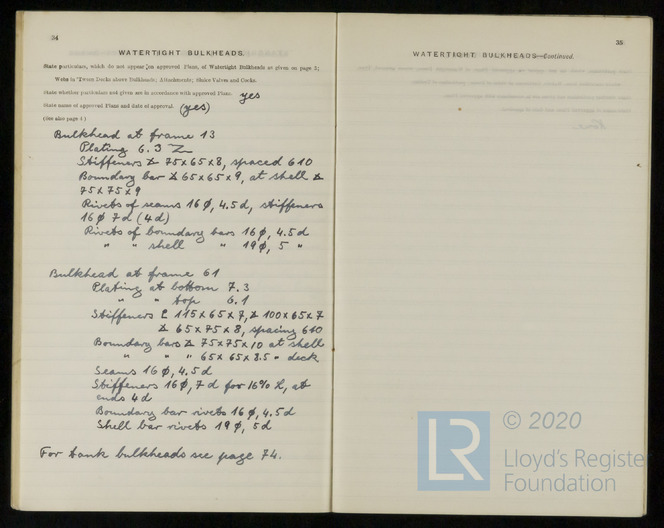 34
WATERTIGHT BULKHEADS.
State particulars, which do not appear on approved Plans, of Watertight Bulkheads as given on page 3;
Webs in 'Tween Decks above Bulkheads; Attachments; Sluice Valves and Cocks.
State whether particulars not given are in accordance with approved Plans. yes
State name of approved Plans and date of approval. (yes)
(See also page 4)
Bulkhead at frame 13
Plating 6.3
Stiffeners 75x65x8, spaced 610
Boundary bar 65x65x9, at shell
75x75x9
Rivets of seams 16 ø, 4.5d, stiffeners
16 ø 7d (4d)
Rivets of boundary bars 16 ø, 4.5d
" " shell " 19 ø, 5 "
Bulkhead at frame 61
Plating at bottom 7.3
" " top 6.1
Stiffeners 115x65x7, 100x65x7
65x75x8, spacing 610
Boundary bars 75x75x10 at shell
" " " 65x65x8.5 " deck
Seams 16 ø, 4.5d
Stiffeners 16 ø, 7d for 16% L, at
ends 4d
Boundary bar rivets 16 ø, 4.5d
Shell bar rivets 19 ø, 5d
For tank bulkheads see page 74.
35
WATERTIGHT BULKHEADS—Continued.
LR
© 2020
Lloyd's Register
Foundation